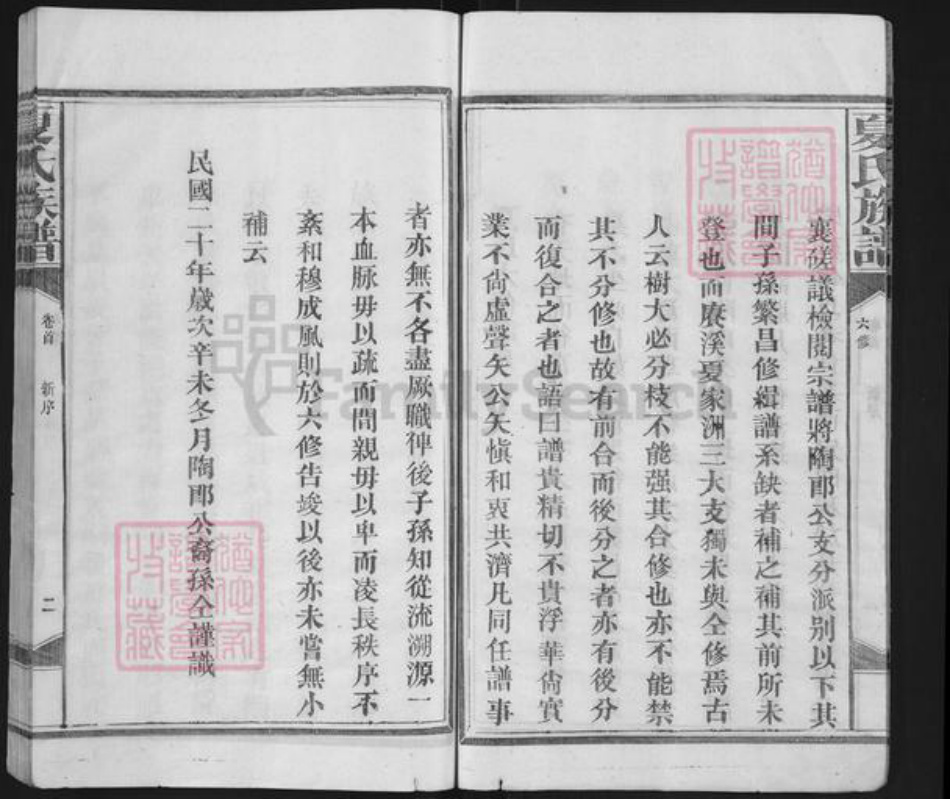 夏氏族譜
六修
襄磋議檢閱宗譜將陶郡公支分派別以下其
間子孫繁昌修緝譜系缺者補之補其前所未
登也而賡溪夏家洲三大支獨未與仝修焉古
人云樹大必分枝不能强其合修也亦不能禁
其不分修也故有前合而後分之者亦有後分
而復合之者也語曰譜貴精切不貴浮華尚實
業不尚虛聲矢公矢愼和衷共濟凡同任譜事
者亦無不各盡厥職俾後子孫知從流溯源一
本血脉毋以疏而間親毋以卑而凌長秩序不
紊和穆成風則於六修告竣以後亦未嘗無小
補云
民國二十年歲次辛未冬月陶郡公裔孫仝謹識
夏氏族譜
卷首 新序
二
FamilySearch